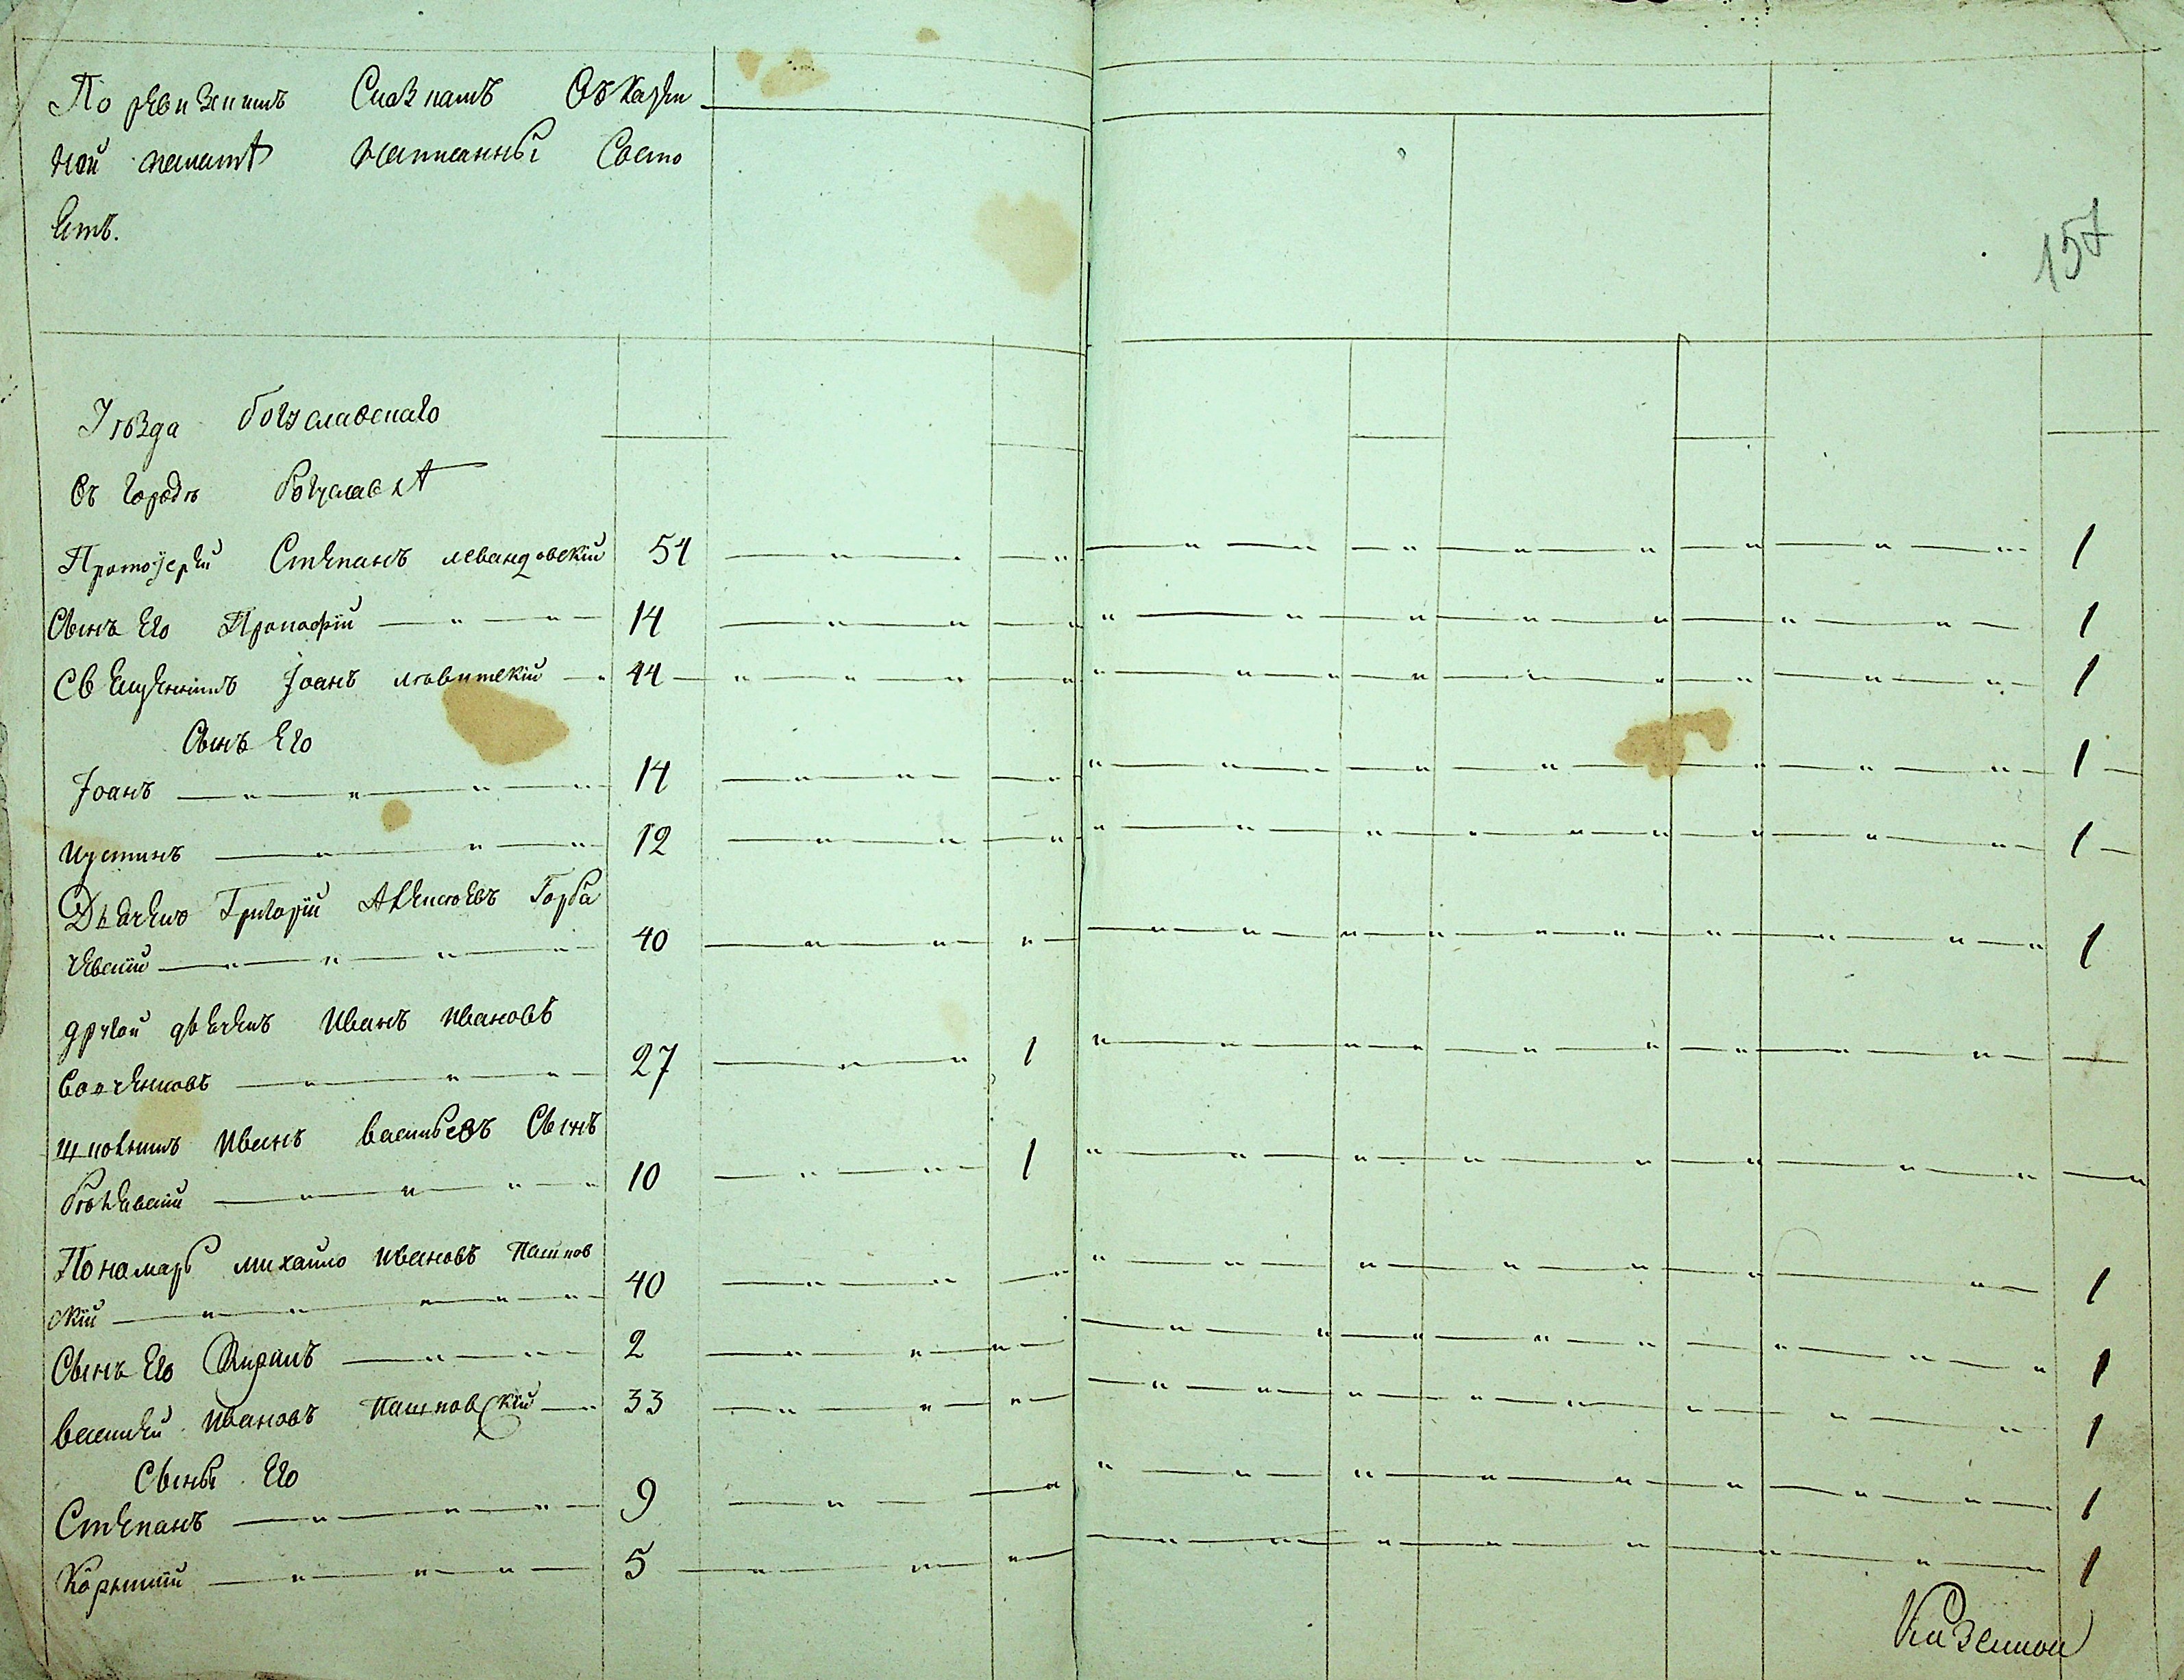 По ревизкимъ Сказкамъ Въ Казен
ной палатѣ написанныі Состо
итъ.
157
Уѣзда богуславскаго
Въ городѣ богуславлѣ
Протоіерей Стефанъ левандовскій 54 1
Сынъ Его Прокофій 14 1
Священникъ Іоанъ левитскій 44 1
Сынъ Его
Іоанъ 14 1
иустинъ 12 1
Дьячекъ Григорій Алексѣевъ Горба
чевскій 40 1
другой дьячекъ Иванъ Ивановъ
27 1
Иванъ васильевъ Сынъ
10 1
Пономарь михайло Ивановъ Пашков
скій 40 1
Сынъ Его Кирилъ 2 1
василій Ивановъ Пашковскій 33 1
Сыны Его
Степанъ 9 1
Корнилій 5 1
Казенной